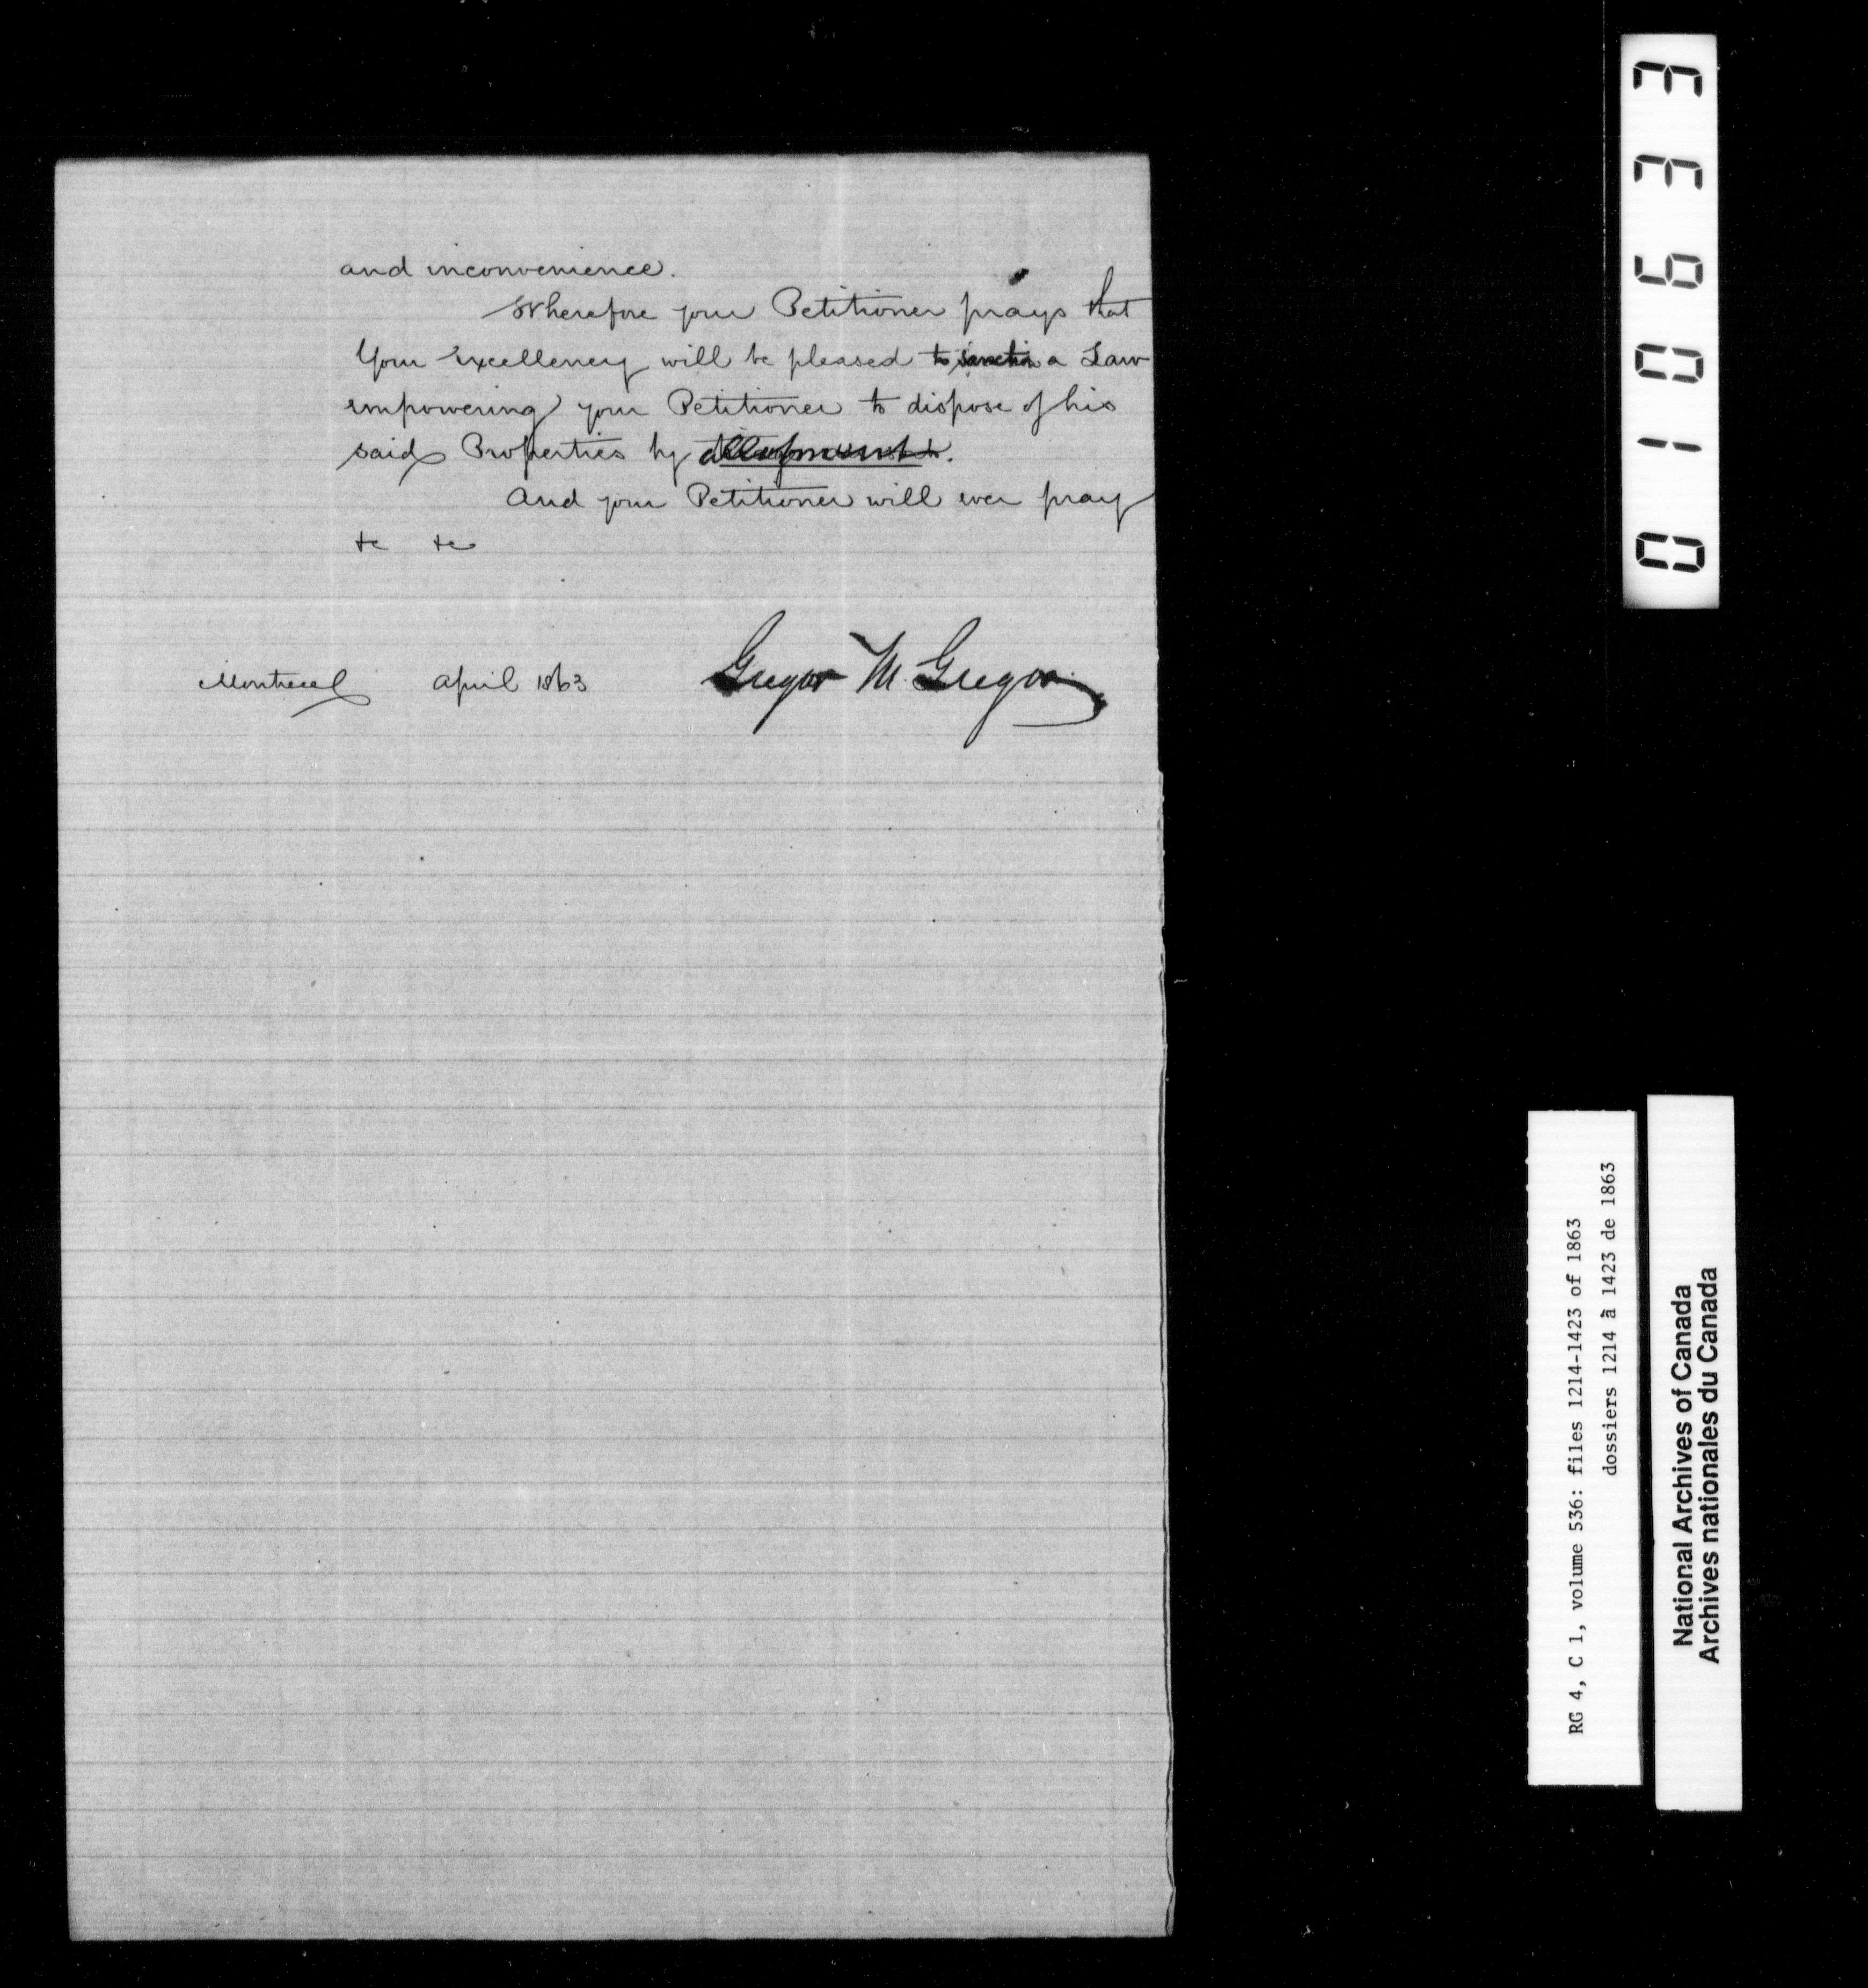 and inconvenience.
Wherefore your Petitioner prays that
Your Excellency will be pleased to sanction a Law
empowering your Petitioner to dispose of his
said Properties by
And your Petitioner will ever pray
&c &c
Montreal April 1863 Gregor McGregor
0110633
RG 4, C 1, volume 536: files 1214-1423 of 1863
dossiers 1214 à 1423 de 1863
National Archives of Canada
Archives nationales du Canada